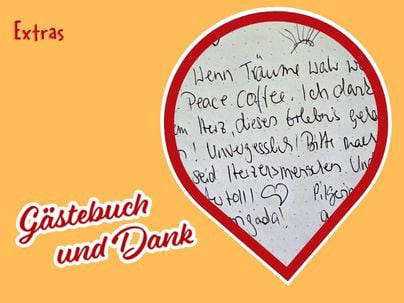 Extras
Wenn Träume wahr
Peace. Coffee. Ich dank
Herz, dieses Erlebnis
! Unvergesslich! Bitte mach
seid Herzensmenschen. Und
toll! ♡ Pilgerin
Gästebuch
und Dank